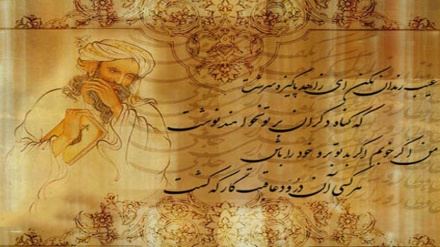 عیب رندان مکن ای زاهد پاکیزه سرشت
که گناه دگران بر تو نخواهند نوشت
من اگر خوبم اگر بد تو برو خود را باش
هر کسی آن درود عاقبت کار که کشت